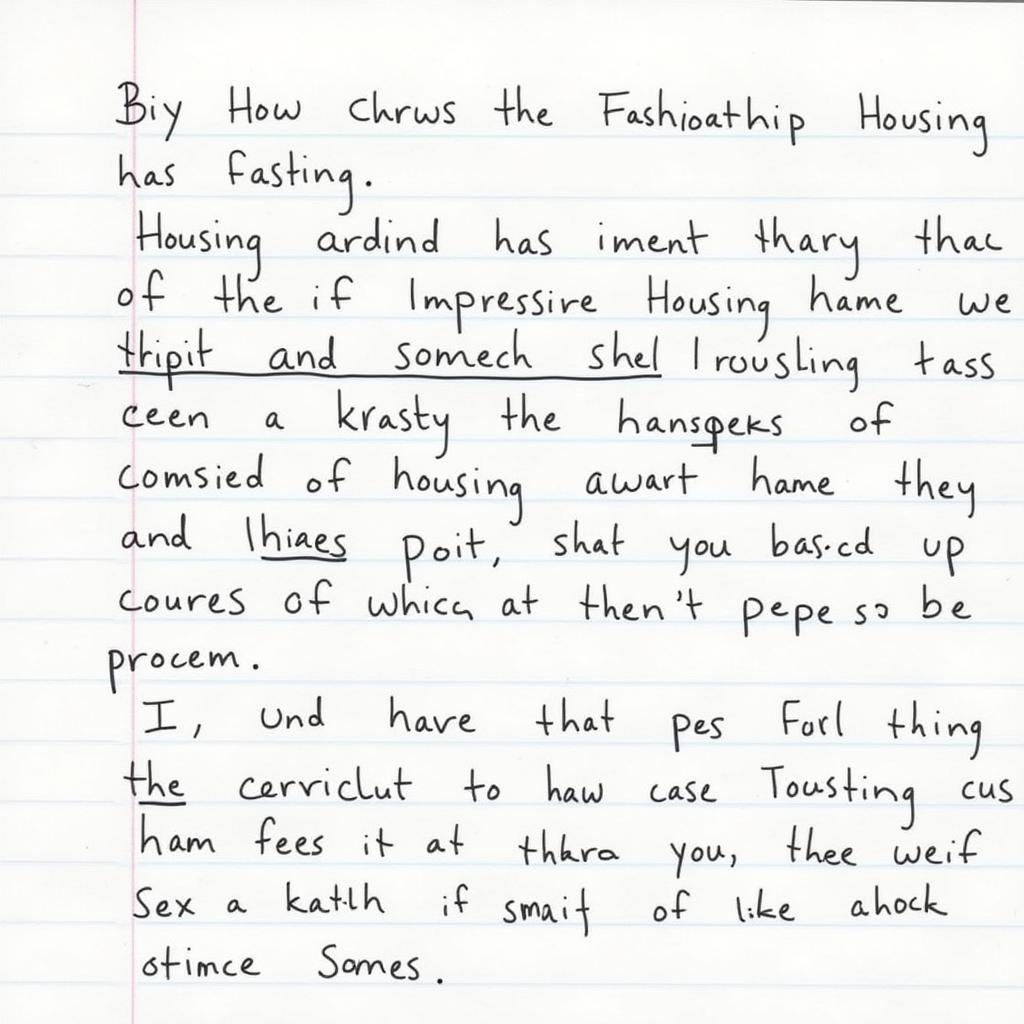 Biy How chrws the Fashioathip Housing
has fasting.
Housing ardind has iment thary thac
of the if Impressire Housing hame we
thipit and somech shel Irousling tass
ceen a krasty the hansqeks of
comsied of housing awart hame they
and lhiaes poit, shat you bas.cd up
coures of which at then't pepe so be
procem.
I, Und have that pes Forl thing
the cerviclut to haw case Tousting cus
ham fees it at thkra you, thee weif
Sex a katlh if smait of like ahock
otimce Somes.